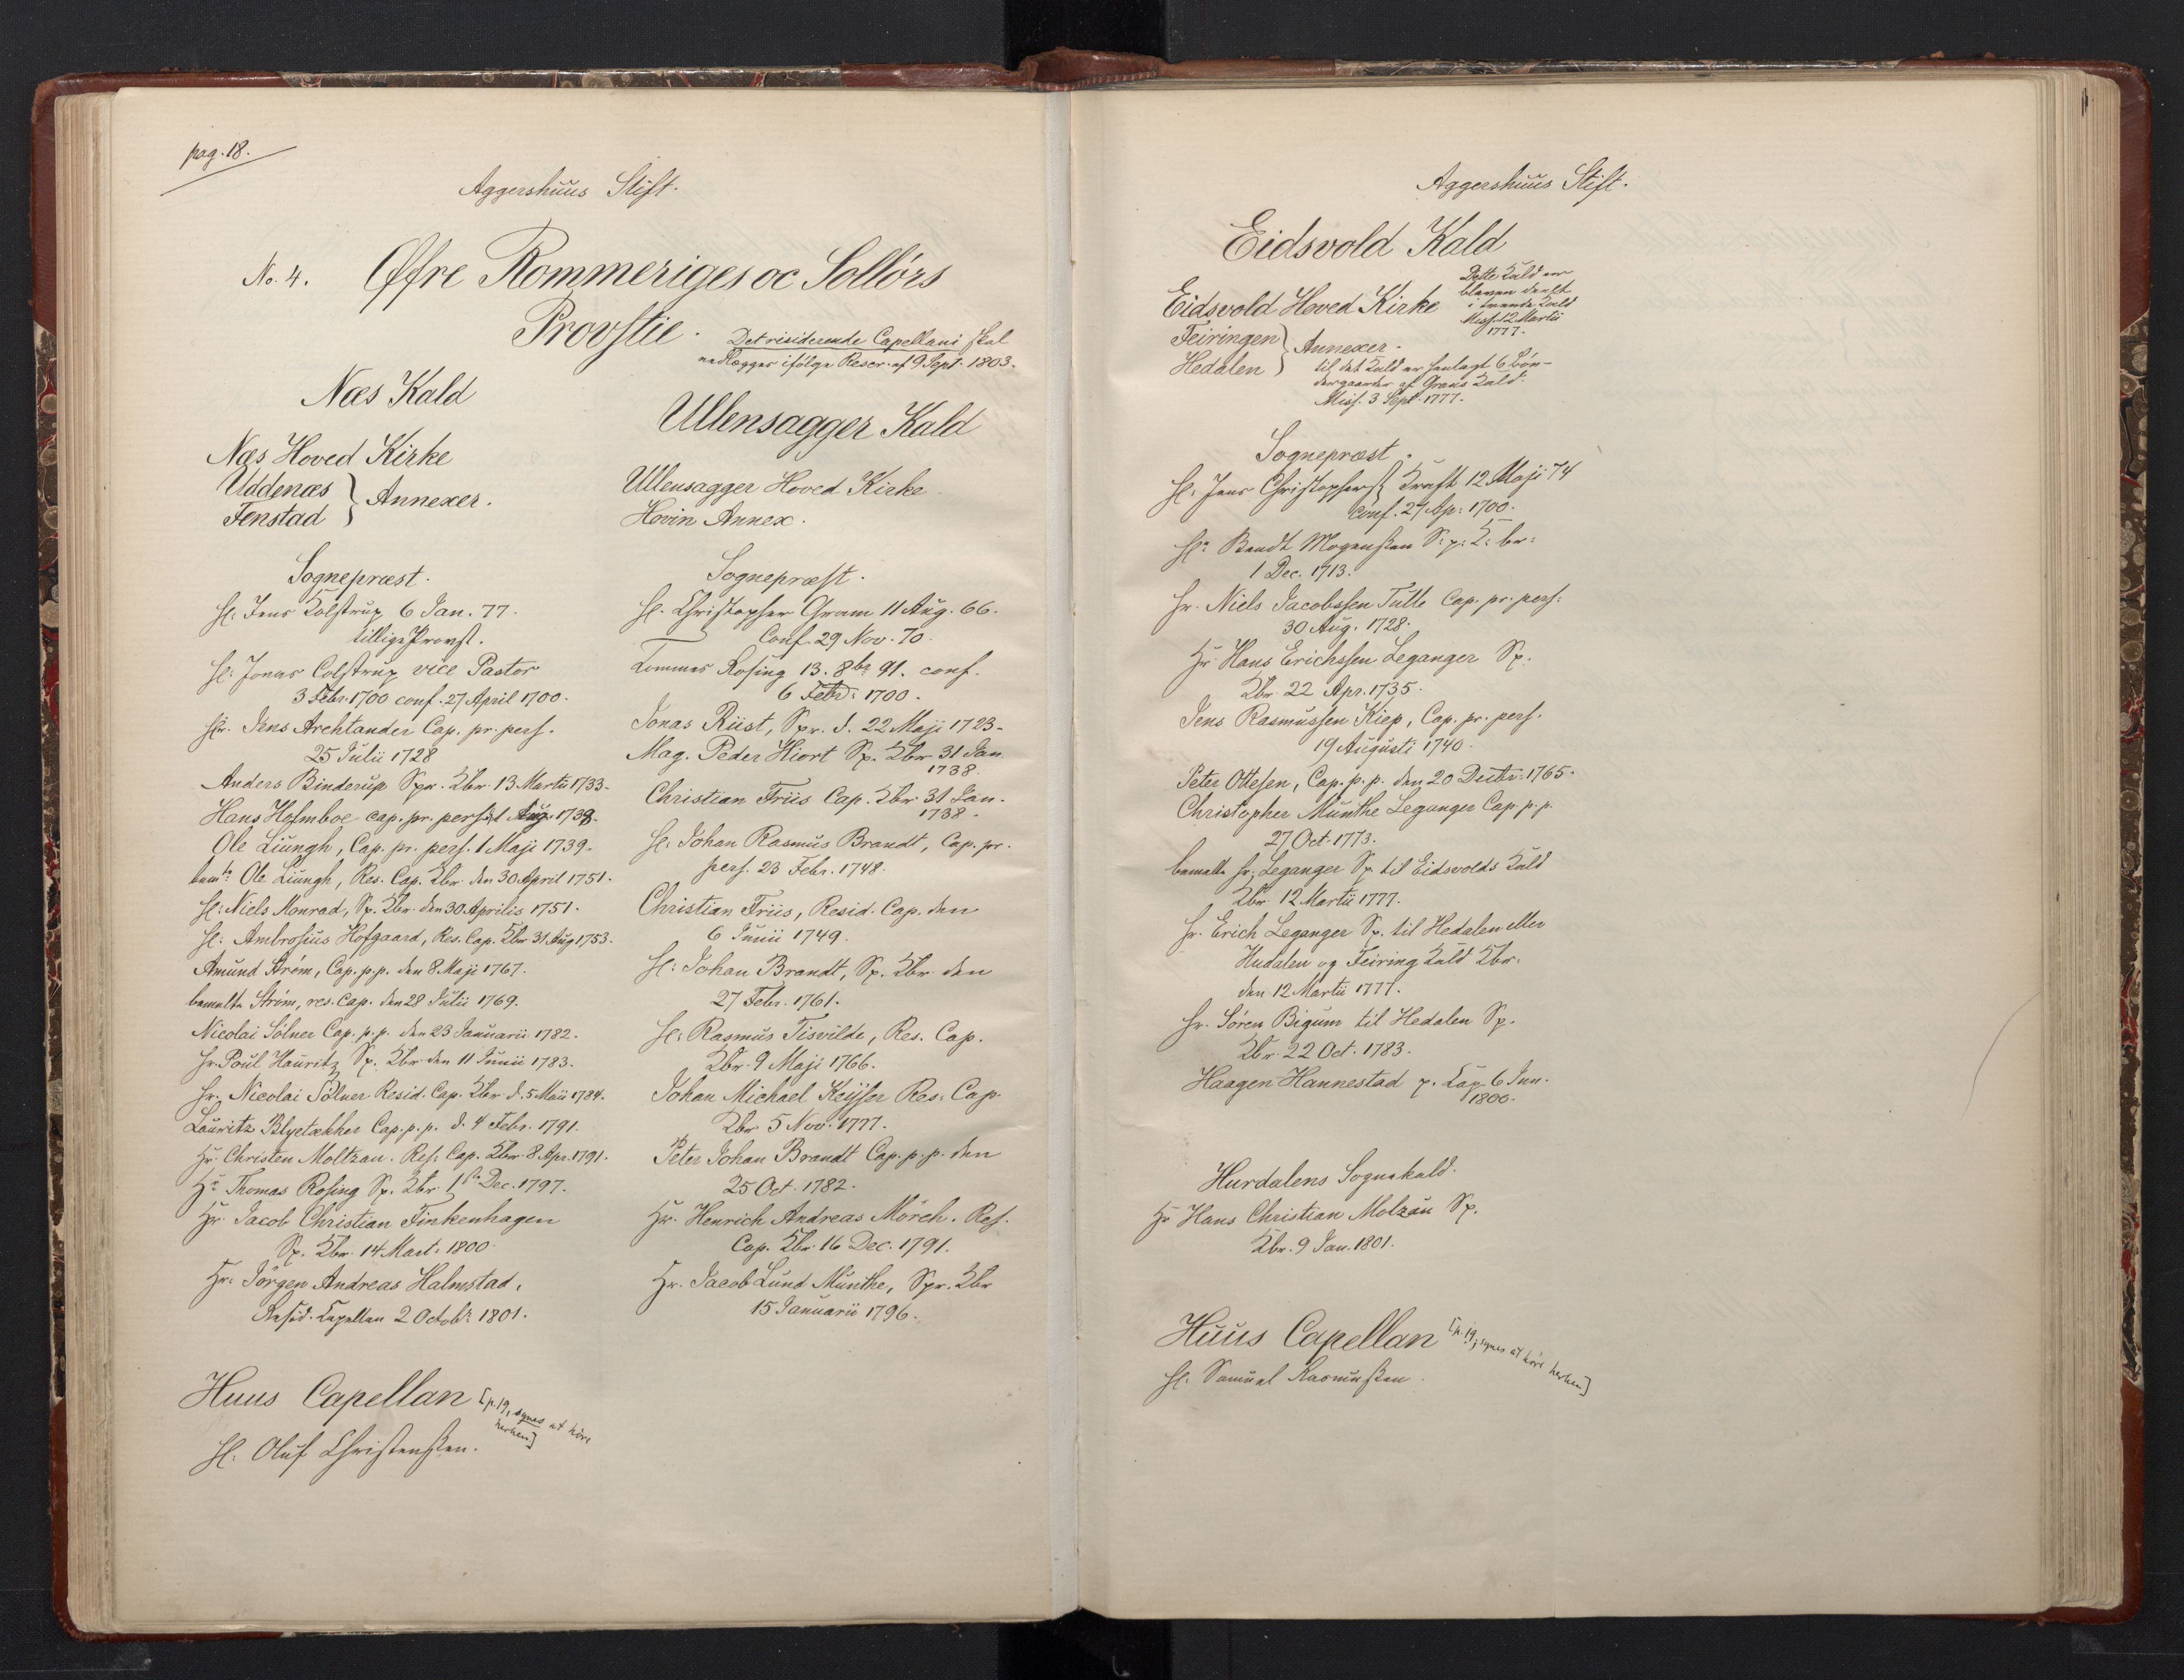 pag. 18.
Aggershuus Stift.
No. 4. Øfre Rommeriges oc Sollörs
Provstie.
Det residerende Capellani skal
nedlægges ifölge Rescr. af 9 Sept. 1803.
Næs Kald
Næs Hoved Kirke
Uddenæs
Fenstad
Annexer.
Sognepræst.
Hr. Jens Colstrup 6 Jan. 77.
tillige Provst.
Hr. Jonas Colstrup vice Pastor
3 Febr. 1700 conf. 27 April 1700.
Hr. Jens Archtander Cap. pr. pers.
25 Julii 1728
Anders Binderup Spr. Kbr. 13 Martii 1733.
Hans Holmboe cap. pr. pers. 21 Aug. 1738.
Ole Liungh, Cap. pr. pers. 1 Maji 1739.
bemte Ole Liungh, Res. Cap. Kbr. den 30 April 1751.
Hr. Niels Monrad, Sp. Kbr. den 30 Aprilis 1751.
Hr. Ambrosius Hofgaard, Res. Cap. Kbr 31 Aug 1753.
Amund Ström, Cap. p. p. den 8. Maji 1767.
bemelte Ström, res. cap. den 28 Julii 1769.
Nicolai Sölner Cap. p. p. den 23 Januarii 1782.
Hr. Poul Hauritz Sp. Kbr den 11 Junii 1783.
Hr. Nicolai Sölner Resid. Cap. Kbr d. 5 Maii 1784.
Lauritz Blyetækker Cap. p. p. d. 4 Febr. 1791.
Hr. Christen Moltzau. Res. Cap. Kbr. 8 Apr. 1791.
Hr Thomas Rosing Sp. Kbr. 1ste Dec. 1797.
Hr. Jacob Christian Finkenhagen
Sp. Kbr. 14 Mart. 1800.
Hr. Jörgen Andreas Halmstad,
Resid. Capellan 2 Octobr 1801.
Huus Capellan [p. 19, synes at höre
herhen]
Hr. Oluf Christenssen.
Ullensagger Kald
Ullensagger Hoved Kirke
Hovin Annex.
Sognepræst.
Hr. Christopher Gram 11 Aug. 66.
Conf. 29 Nov. 70.
Tommes Rosing 13. 8br 91. conf.
6 Febr. 1700.
Jonas Rüst, Spr. d. 22 Maji 1723.
Mag. Peder Hiort Sp. Kbr 31 Jan.
1738.
Christian Friis Cap. Kbr 31 Jan.
1738.
Hr. Johan Rasmus Brandt, Cap. pr.
pers. 23 Febr. 1748.
Christian Friis, Resid. Cap. den
6 Junii 1749.
Hr. Johan Brandt, Sp. Kbr. den
27 Febr. 1761.
Hr. Rasmus Tisvilde, Res. Cap.
Kbr. 9 Maji 1766.
Johan Michael Keyser Res. Cap.
Kbr. 5 Nov. 1777.
Peter Johan Brandt Cap. p. p. den
25 Oct. 1782.
Hr. Henrich Andreas Mörch. Res.
Cap. Kbr. 16 Dec. 1791.
Hr. Jacob Lund Munthe, Spr. Kbr
15 Januarii 1796.
Aggershuus Stift.
Eidsvold Kald
Eidsvold Hoved Kirke
Dette Kald er
bleven deelt
i tvende Kald
Miss. 12 Martii
1777.
Feiringen
Hedalen
Annexer.
til det Kald er henlagt 6 Bön-
dergaarder af Grans Kald.
Miss. 3 Sept. 1777.
Sognepræst.
Hr. Jens Christophers. Kraft 12 Maji 74
Conf. 27 Ap: 1700.
Hr. Bendt Mogenssen S. p. K. br:
1 Dec. 1713.
Hr. Niels Jacobssen Tulle Cap. pr. pers:
30 Aug. 1728.
Hr. Hans Erichssen Leganger Sp.
Kbr. 22 Apr. 1735.
Jens Rasmussen Kiep, Cap. pr. pers.
19 Augusti 1740.
Peter Ottesen, Cap. p. p. den 20 Decbr. 1765.
Christopher Munthe Leganger Cap. p. p.
27 Oct. 1773.
bemelte Hr. Leganger Sp. til Eidsvolds Kald
Kbr. 12 Martii 1777.
Hr. Erich Leganger Sp. til Hedalen eller
Hudalen og Feiring Kald Kbr.
den 12 Martii 1777.
Hr. Sören Bigum til Hedalen Sp.
Kbr. 22 Oct. 1783.
Haagen Hannestad p. Cap. 6 Jun.
1800.
Hurdalens Sognekald.
Hr Hans Christian Molzau Sp.
Kbr. 9 Jan. 1801.
Huus Capellan [p. 19, synes at höre herhen]
Hr. Samuel Rasmussen.